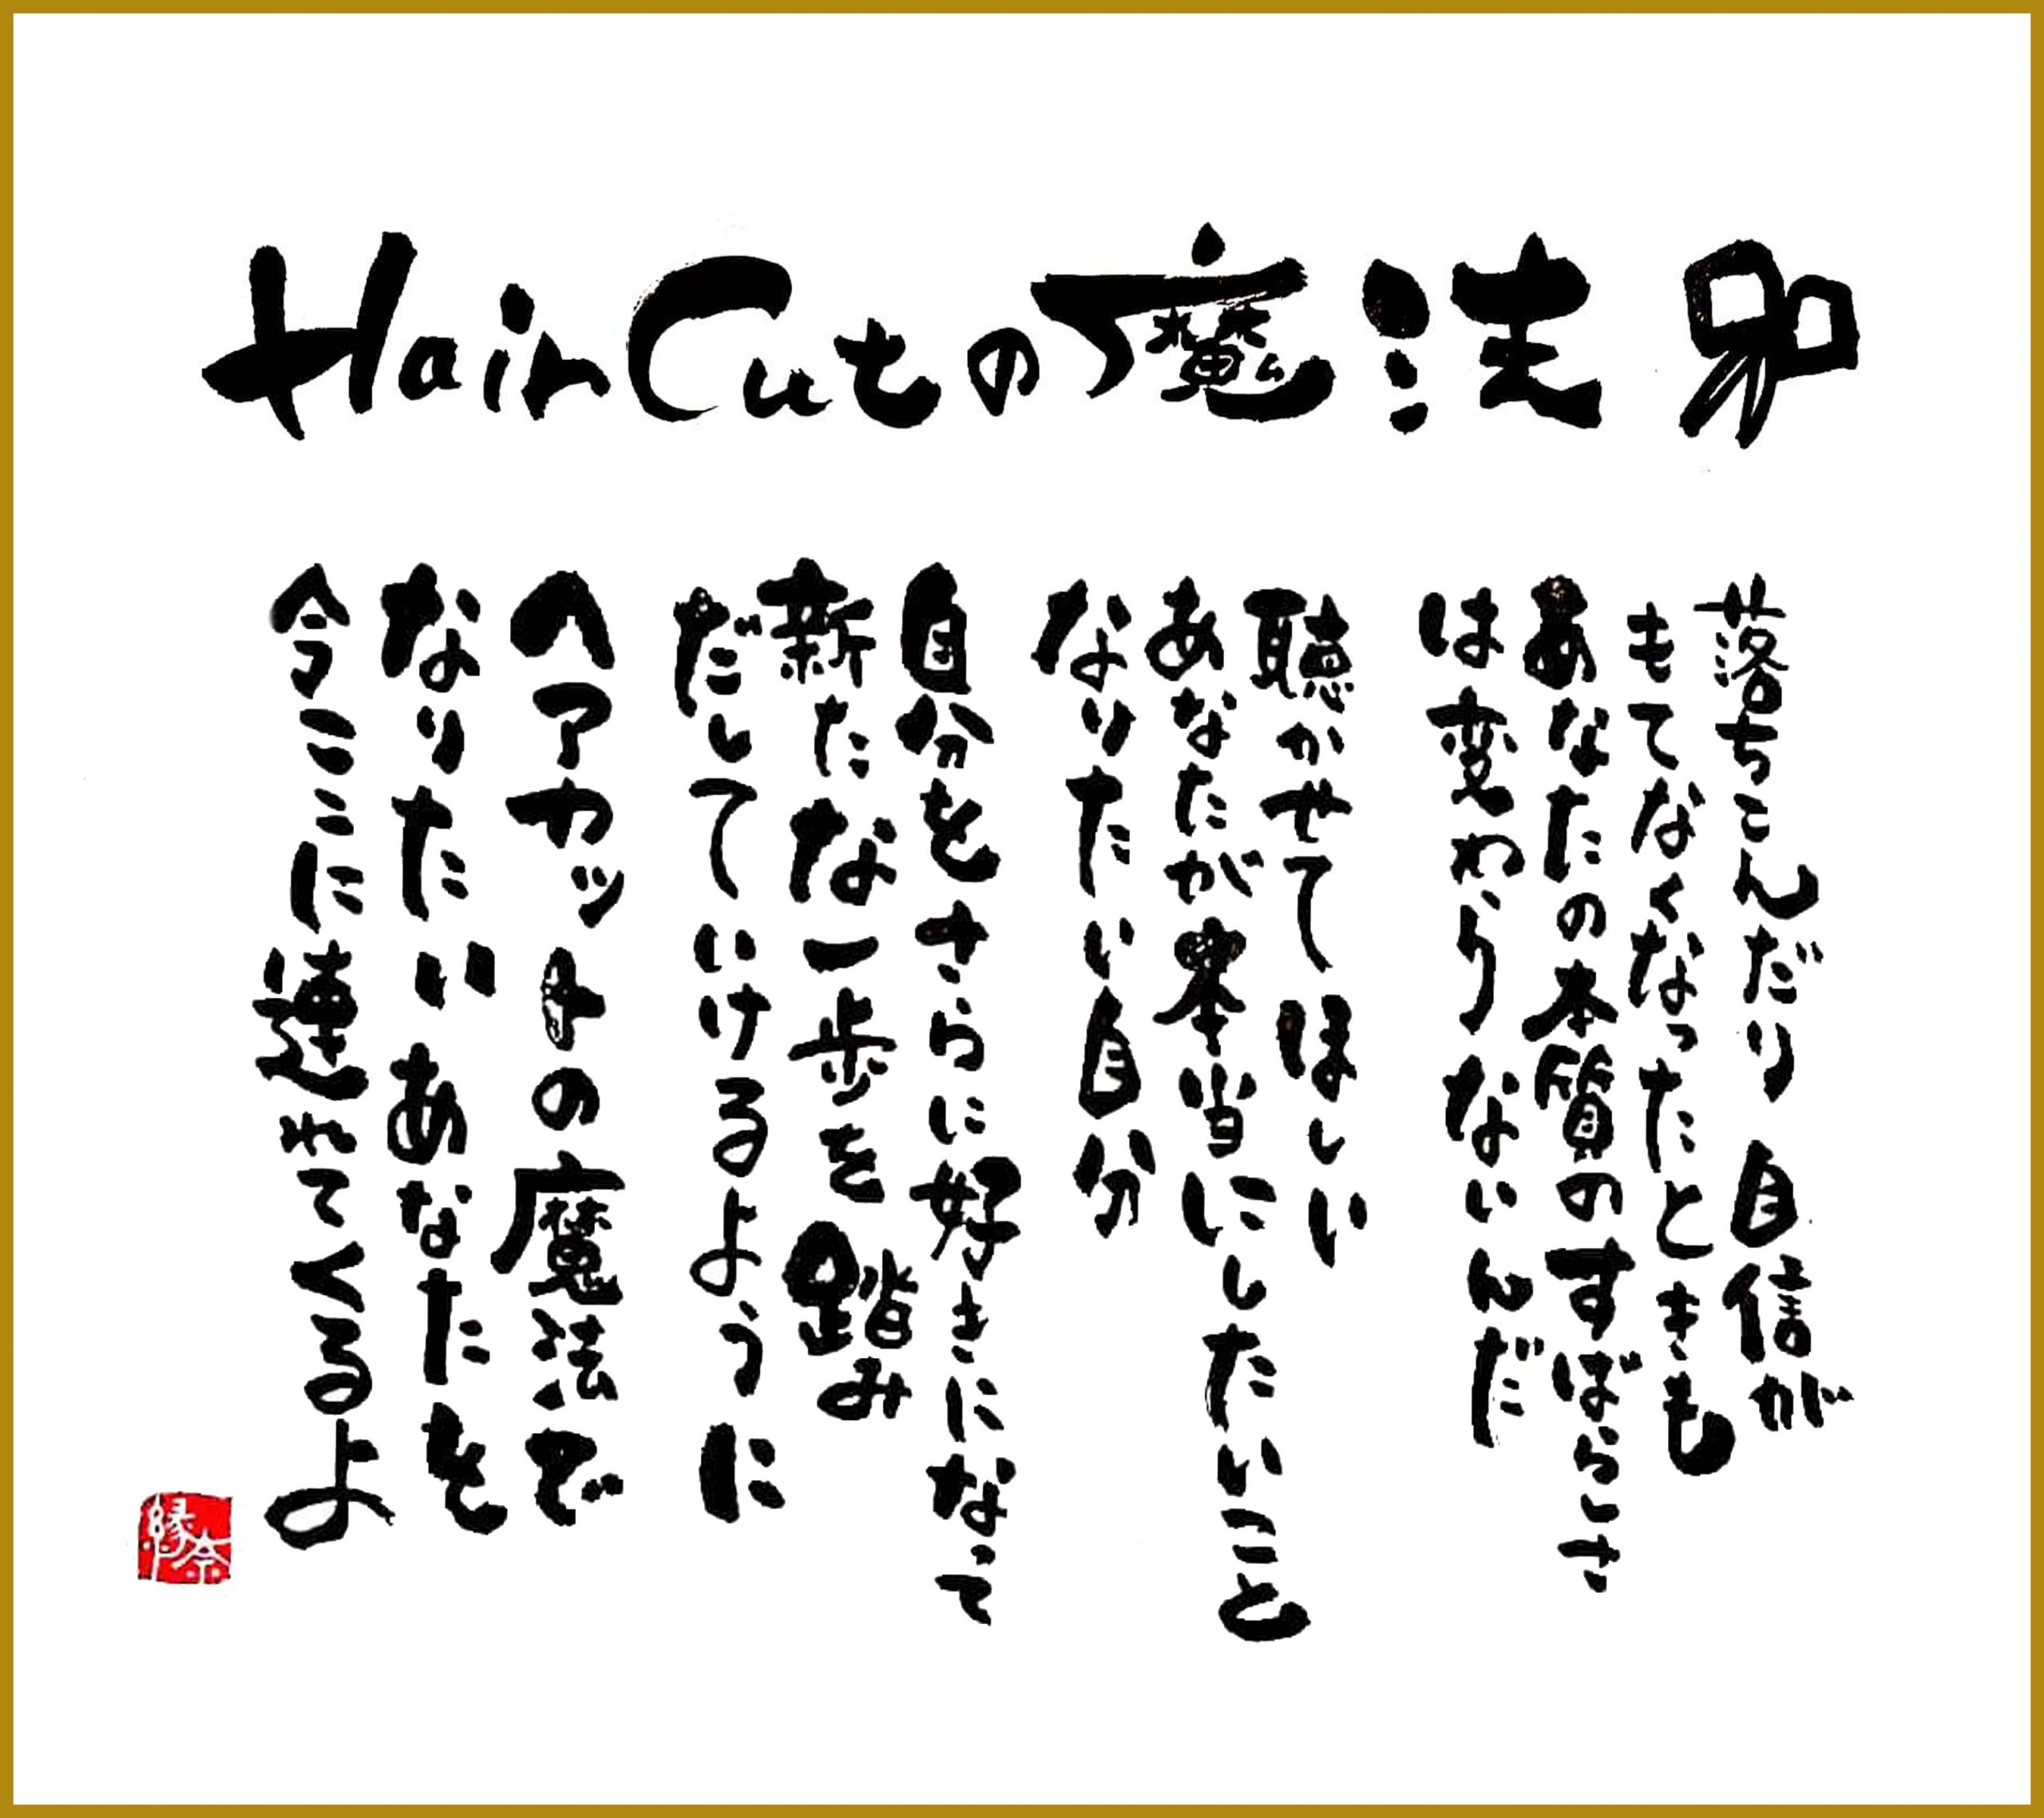 HairCutの魔法
落ちこんだり自信が
もてなくなったときも
あなたの本質のすばらしさ
は変わらないんだ
聴かせてほしい
あなたが本当にしたいこと
なりたい自分
自分をさらに好きになって
新たな一歩を踏み
だしていけるように
ヘアカットの魔法で
なりたいあなたを
今ここに連れてくるよ
縁奈